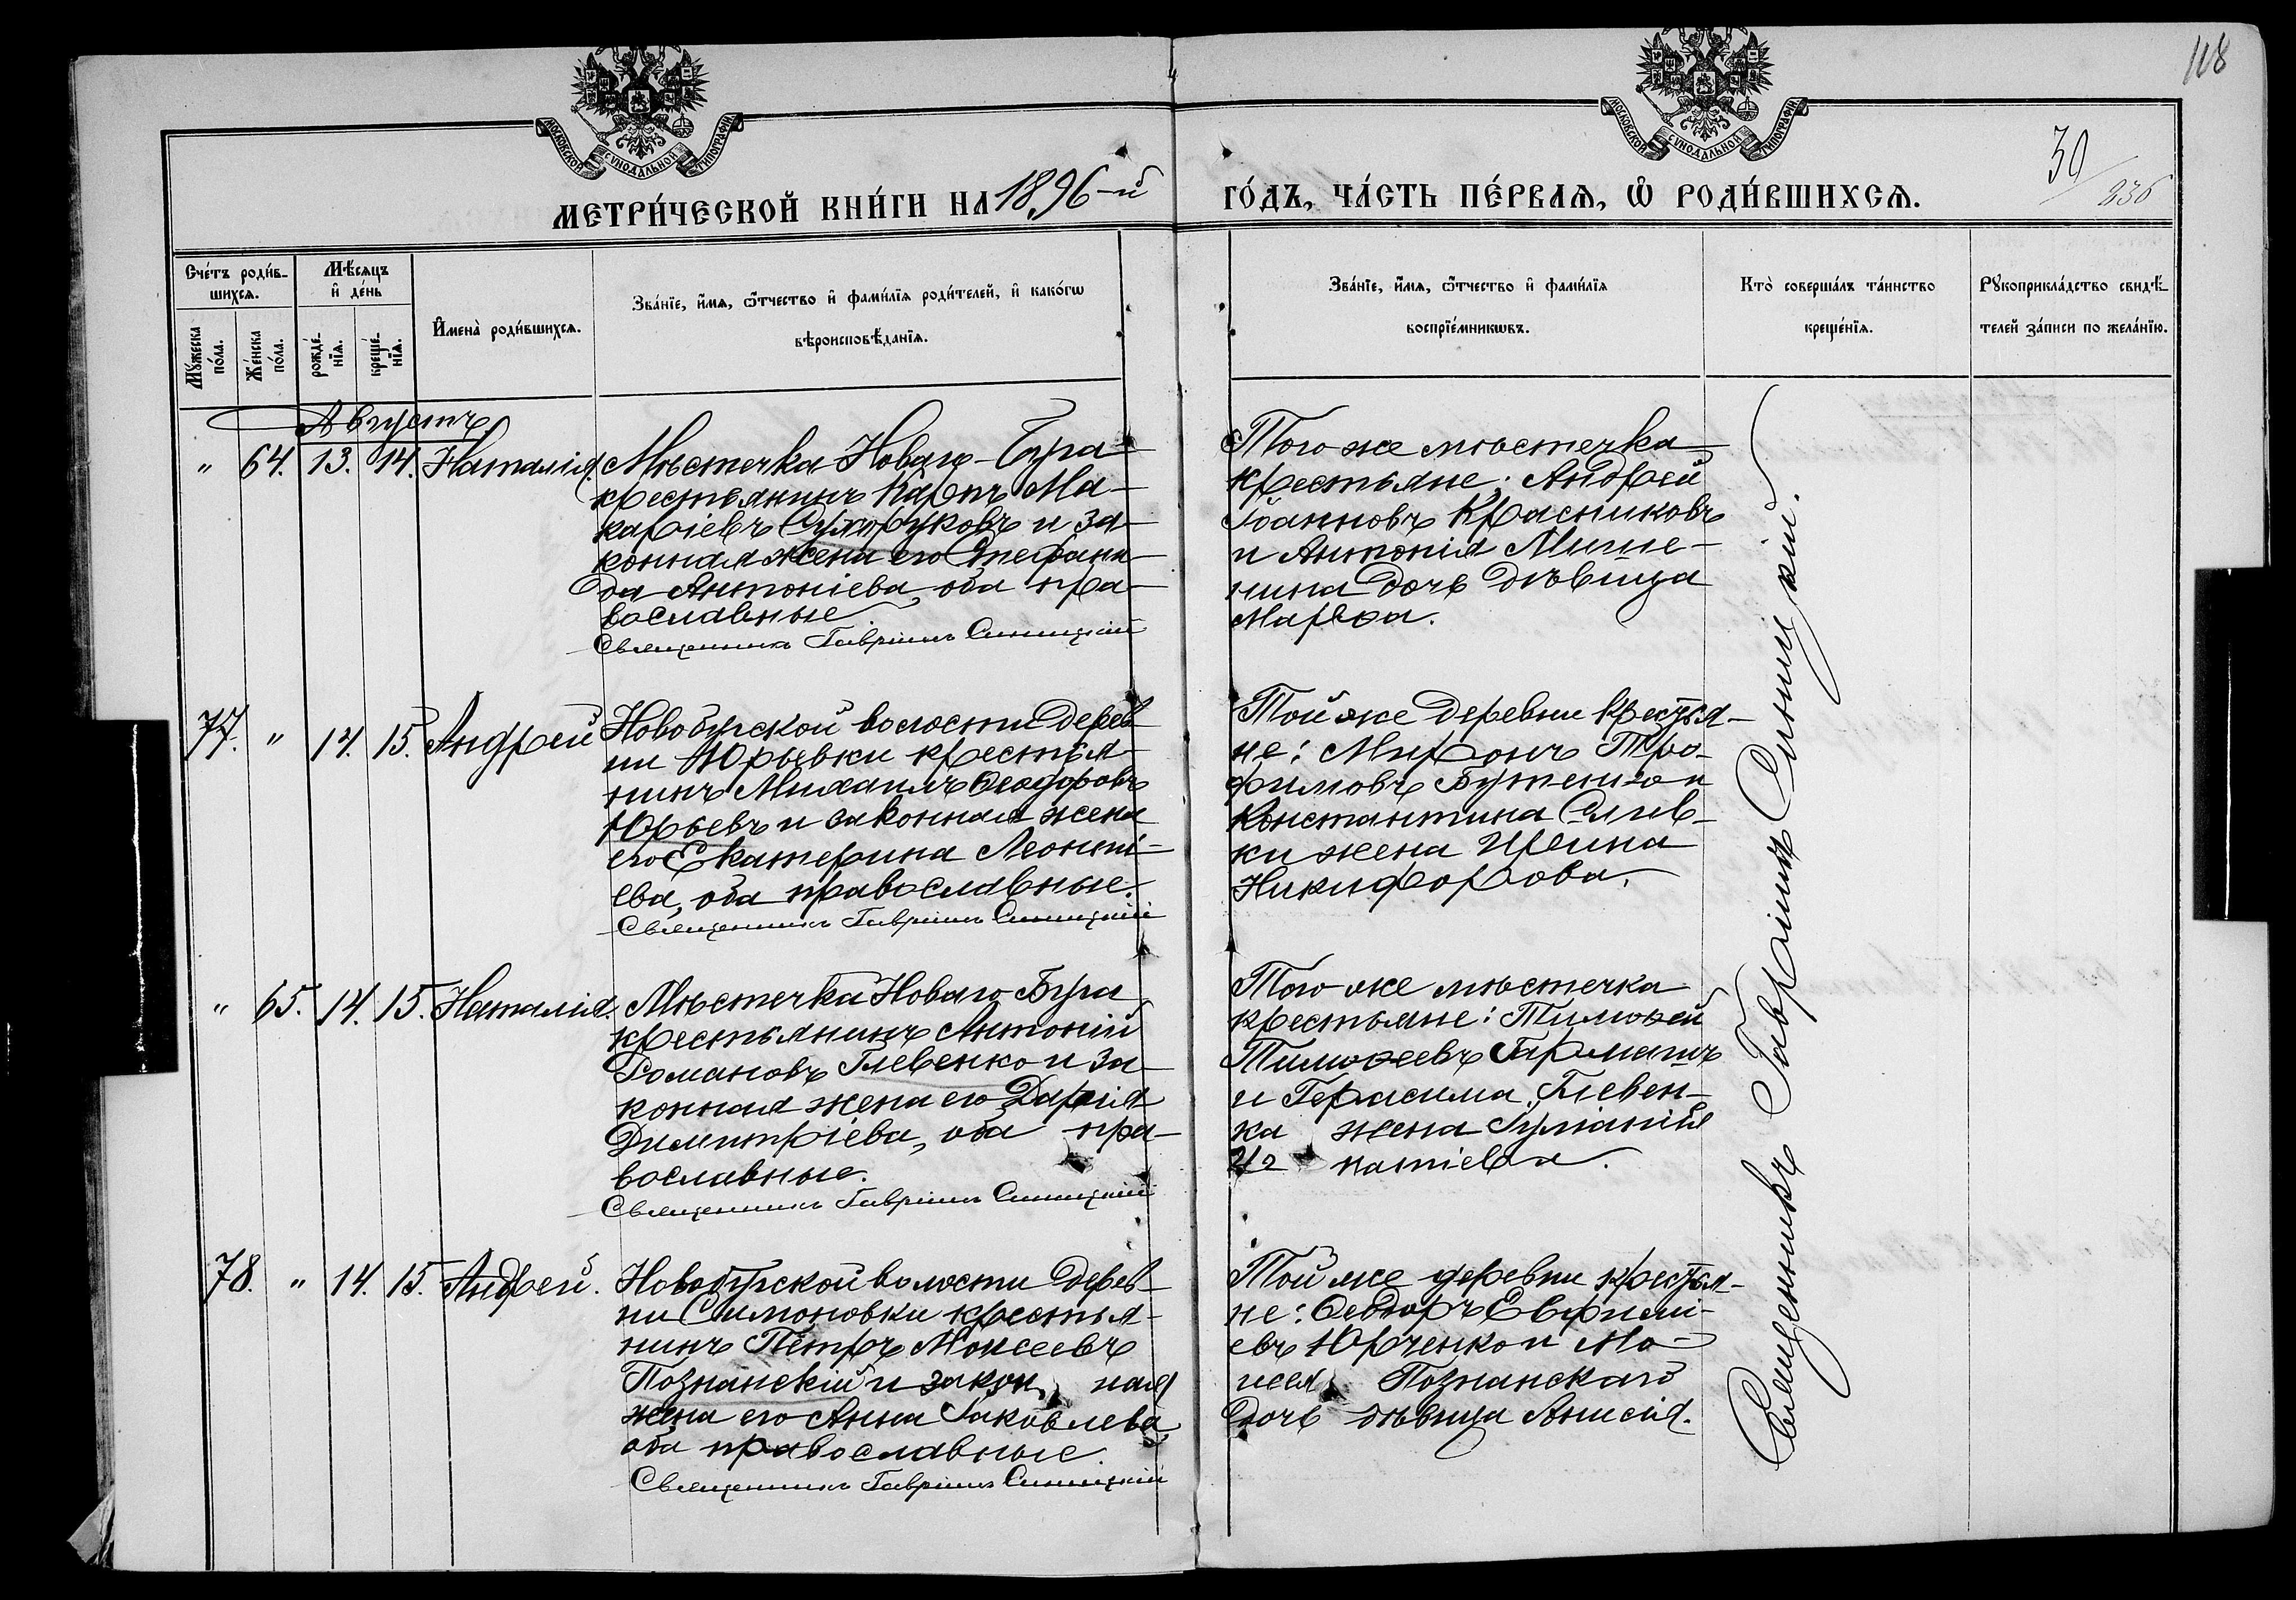 118
МОСКОВСКОЙ СѴНОДАЛЬНОЙ ТИПОГРАФІИ
МОСКОВСКОЙ СѴНОДАЛЬНОЙ ТИПОГРАФІИ
30
236
МЕТРИ́ЧЕСКОЙ КНИ́ГИ НА 1896-й
ГО́ДЪ, ЧА́СТЬ ПЕ́РВАѦ, Ѽ РОДИ́ВШИХСѦ.
Сче́тъ роди́в-
шихсѧ.
Мѣ́сѧцъ
и҆ де́нь
Мꙋ́жеска
по́ла.
Же́нска
по́ла.
рожде́-
нїѧ.
креще́-
нїѧ.
И҆мена̀ роди́вшихсѧ.
Зва́нїе, и҆́мѧ, ѻ҆́тчество и҆ фами́лїѧ роди́телей, и҆ како́гѡ
вѣроисповѣ́данїѧ.
Зва́нїе, и҆́мѧ, ѻ҆́тчество и҆ фами́лїѧ
воспрїе́мникѡвъ.
Кто̀ соверша́лъ та́инство
креще́нїѧ.
Рꙋкоприкла́дство свидѣ́-
телей за́писи по жела́нїю.
Августъ
" 64. 13. 14. Наталія. Мѣстечка Новаго-Буга
крестьянинъ Карпъ Ма-
каріевъ и за-
конная жена его Стефани-
да Антоніева, оба пра-
вославные
Священникъ Гавріилъ Синицкій
Того же мѣстечка
крестьяне: Андрей
Іоанновъ Красниковъ
и Антонія Мише-
нина дочь дѣвица
Марѳа.
77. " 14. 15. Андрей Новобугской волости дерев-
ни Юрьевки крестья-
нинъ Михаилъ Ѳеодоровъ
Юрьевъ и законная жена
его Екатерина Леонті-
ева, оба православные.
Священникъ Гавріилъ Синицкій
Той же деревни крестья-
не: Миронъ Тро-
фимовъ Бутенко и
Константина
ки жена Ирина
Никифорова.
" 65. 14. 15. Наталія. Мѣстечка Новаго Буга
крестьянинъ Антоній
Романовъ Глевенко и за-
конная жена его Дарія
Димитріева, оба пра-
вославные.
Священникъ Гавріилъ Синицкій
Того же мѣстечка
крестьяне: Тимоѳей
Тимоѳеевъ Гармашъ
и Герасима Глевен-
ка жена Іуліанія
Игнатіева.
78. " 14. 15. Андрей. Новобугской волости дерев-
ни Симоновки крестья-
нинъ Петръ Моисеевъ
Познанскій и закон ная
жена его Анна Іаковлева
оба православные.
Священникъ Гавріилъ Синицкій
Той же деревни крестья-
не: Ѳеодоръ Евфимі-
евъ Юрченко и Мо-
исея Познанскаго
дочь дѣвица Анисія.
Священникъ Гавріилъ Синицкій.